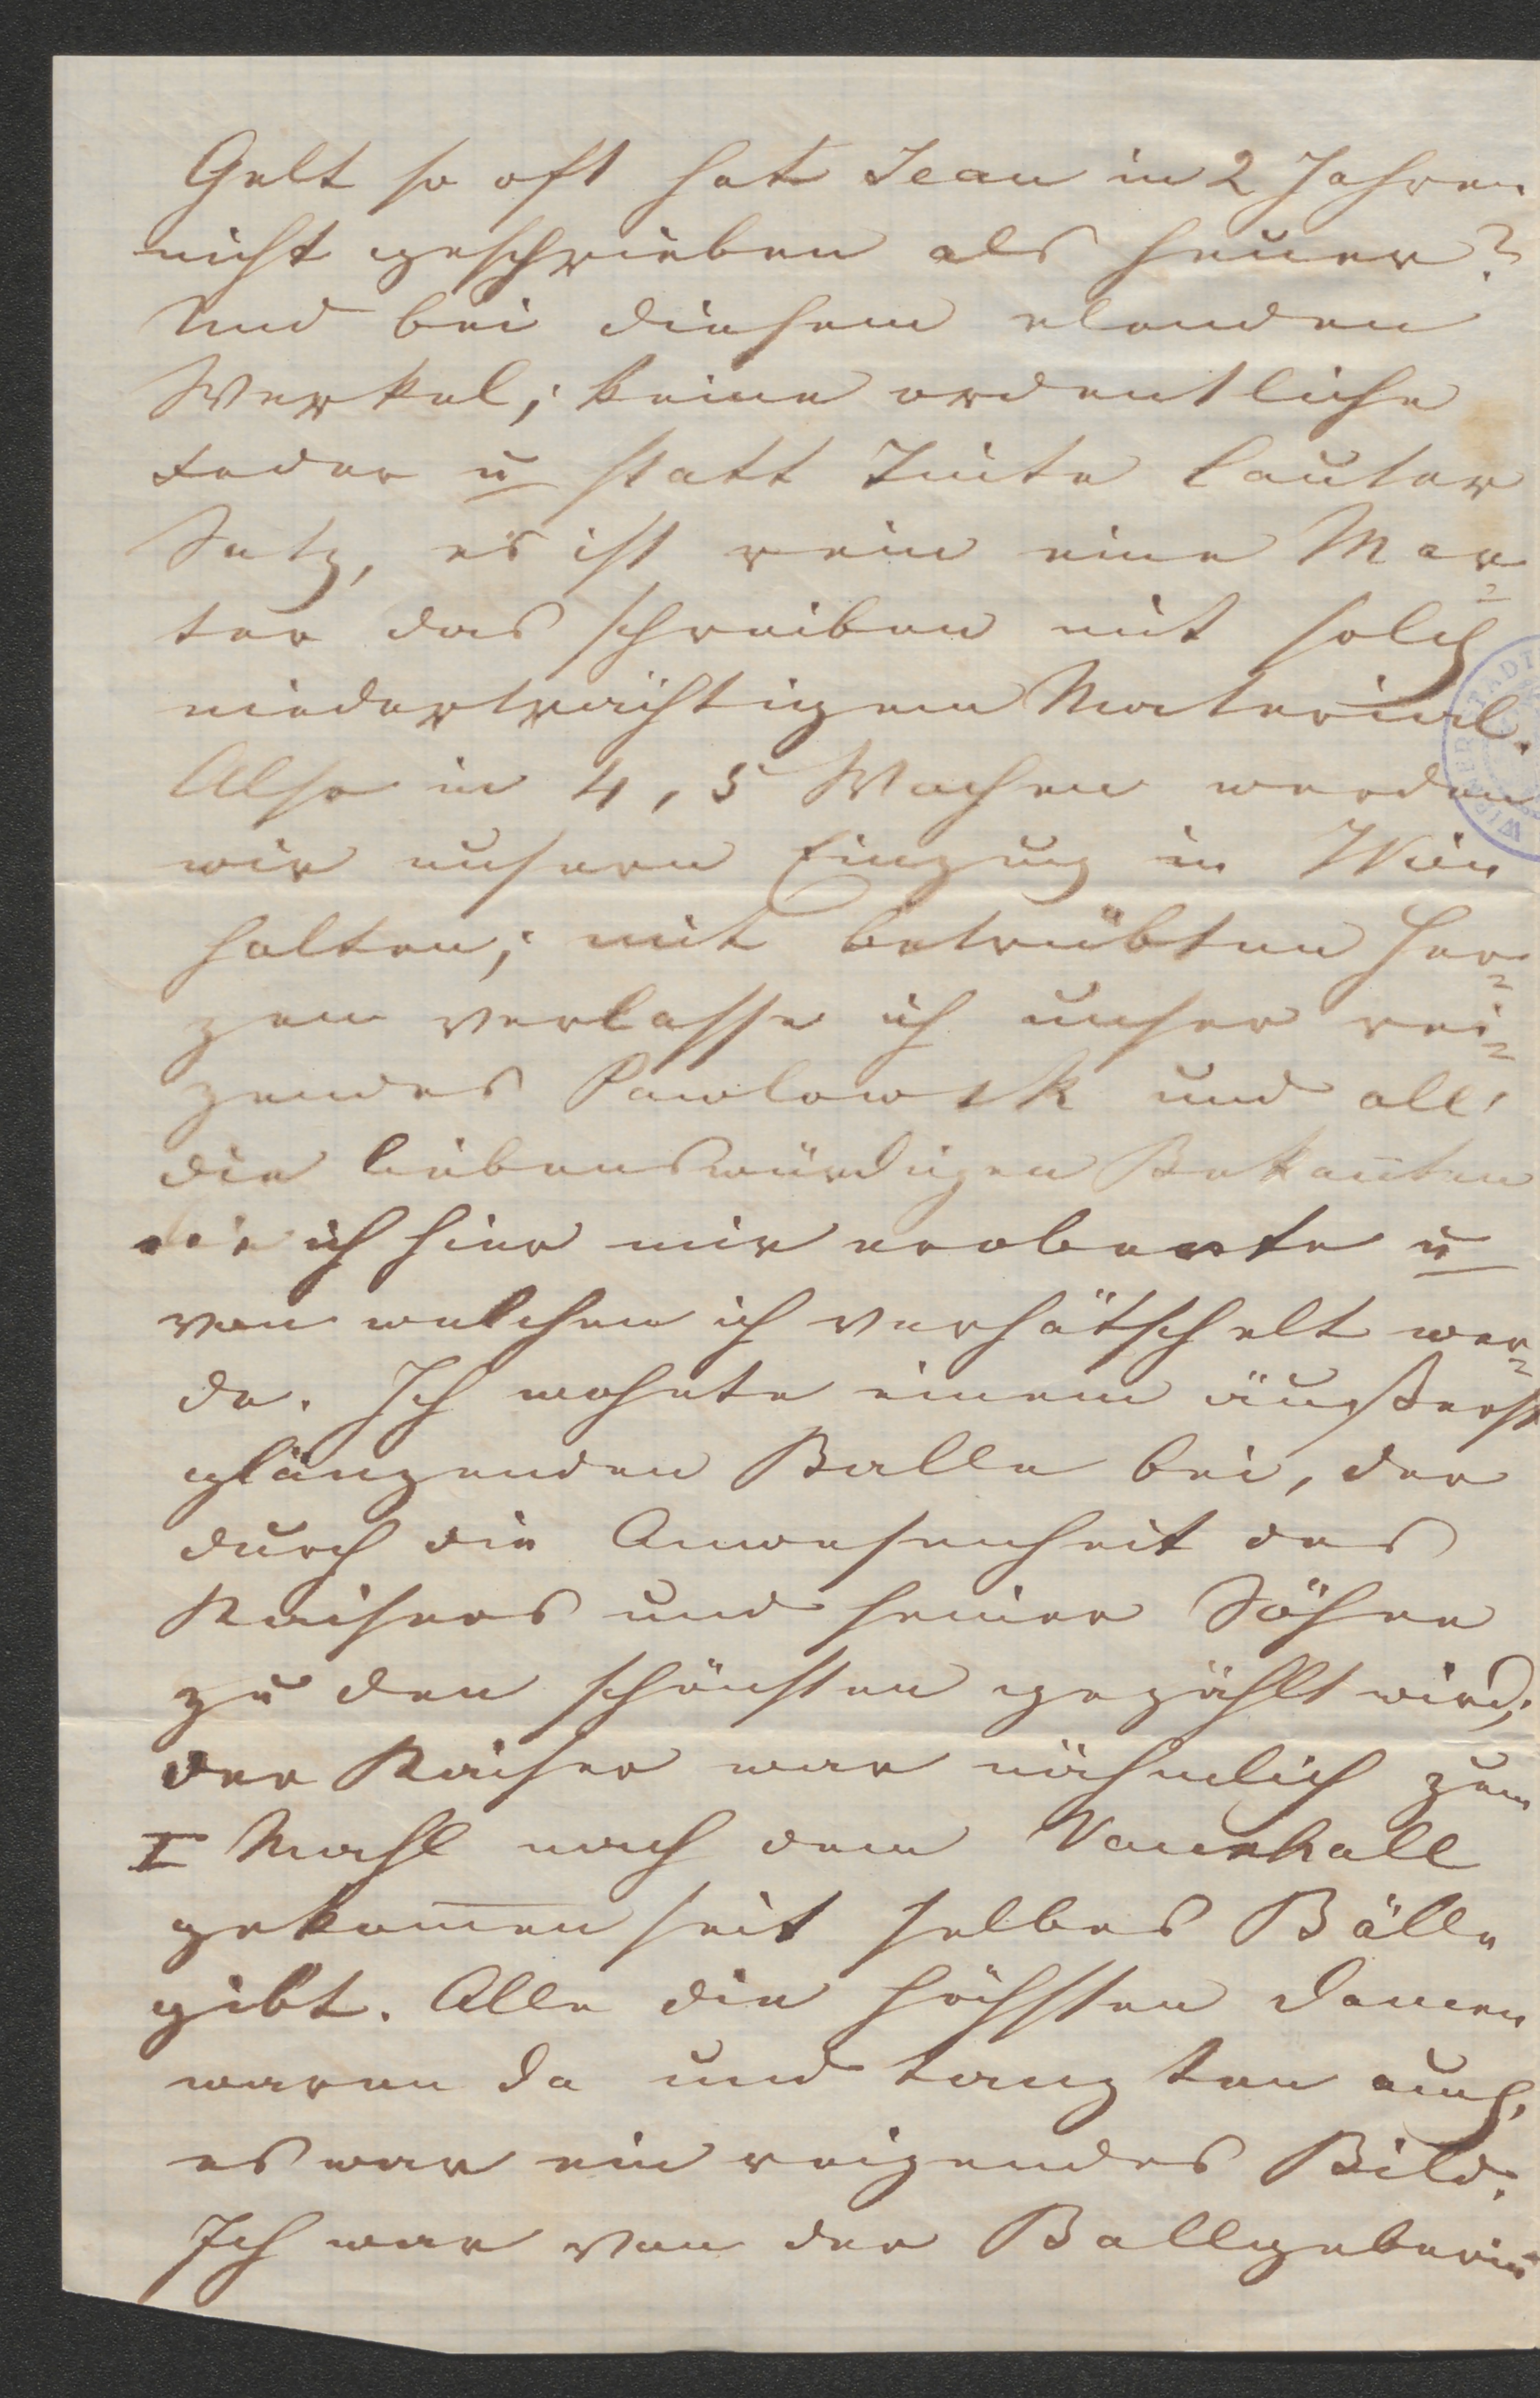 Gelt so oft hat Jean in 2 Jahren
nicht geschrieben als heuer?
Und bei diesem elenden
Werkel; keine ordentliche
Feder u statt Tinte lauter
Satz, es ist rein eine Mar=
ter das schreiben mit solch
niederträchtigem Material.
Also in 4, 5 Wochen werden
wir unsern Einzug in Wien
halten; mit betrübten Her=
zen verlasse ich unser rei=
zendes Pawlowsk und all'
die liebenswürdigen Bekan̄ten
die ich hier mir eroberte u
von welchen ich verhätschelt wer=
de. Ich wohnte einem äußerst
glänzenden Balle bei, der
durch die Anwesenheit des
Kaisers und seiner Söhne
zu den schönsten gezählt wird;
der Kaiser war nähmlich zum
I Mahl nach dem Vauxhall
gekom̄en seit selbes Bälle
gibt. Alle die höchsten Damen
waren da und tanzten auch,
es war ein reizendes Bild.
Ich war von der Ballgeberin
WIENER STADT